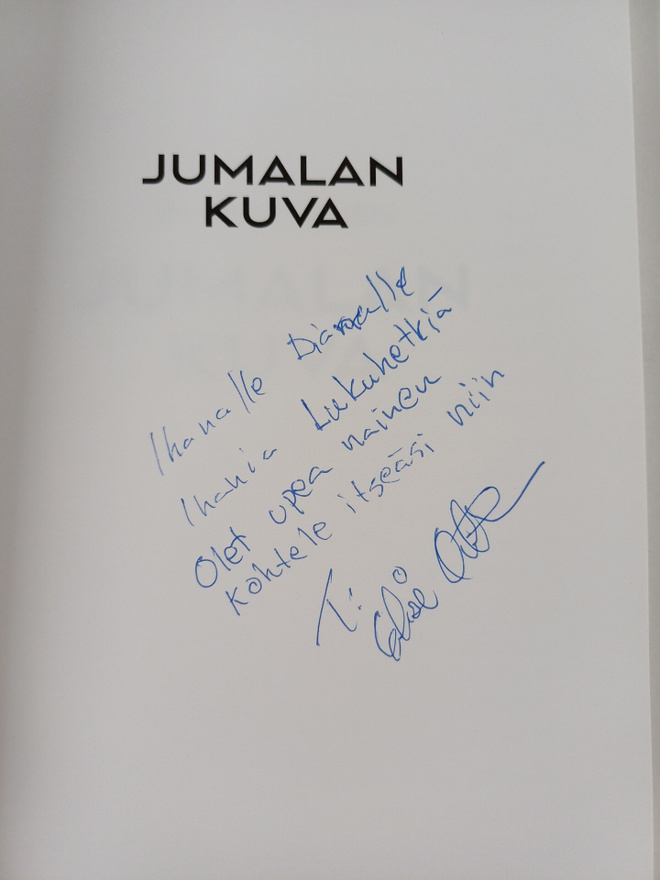 JUMALAN
KUVA
Ihanalle
Ihania Lukuhetkiä
Olet upea nainen
kohtele itseäsi niin
T: